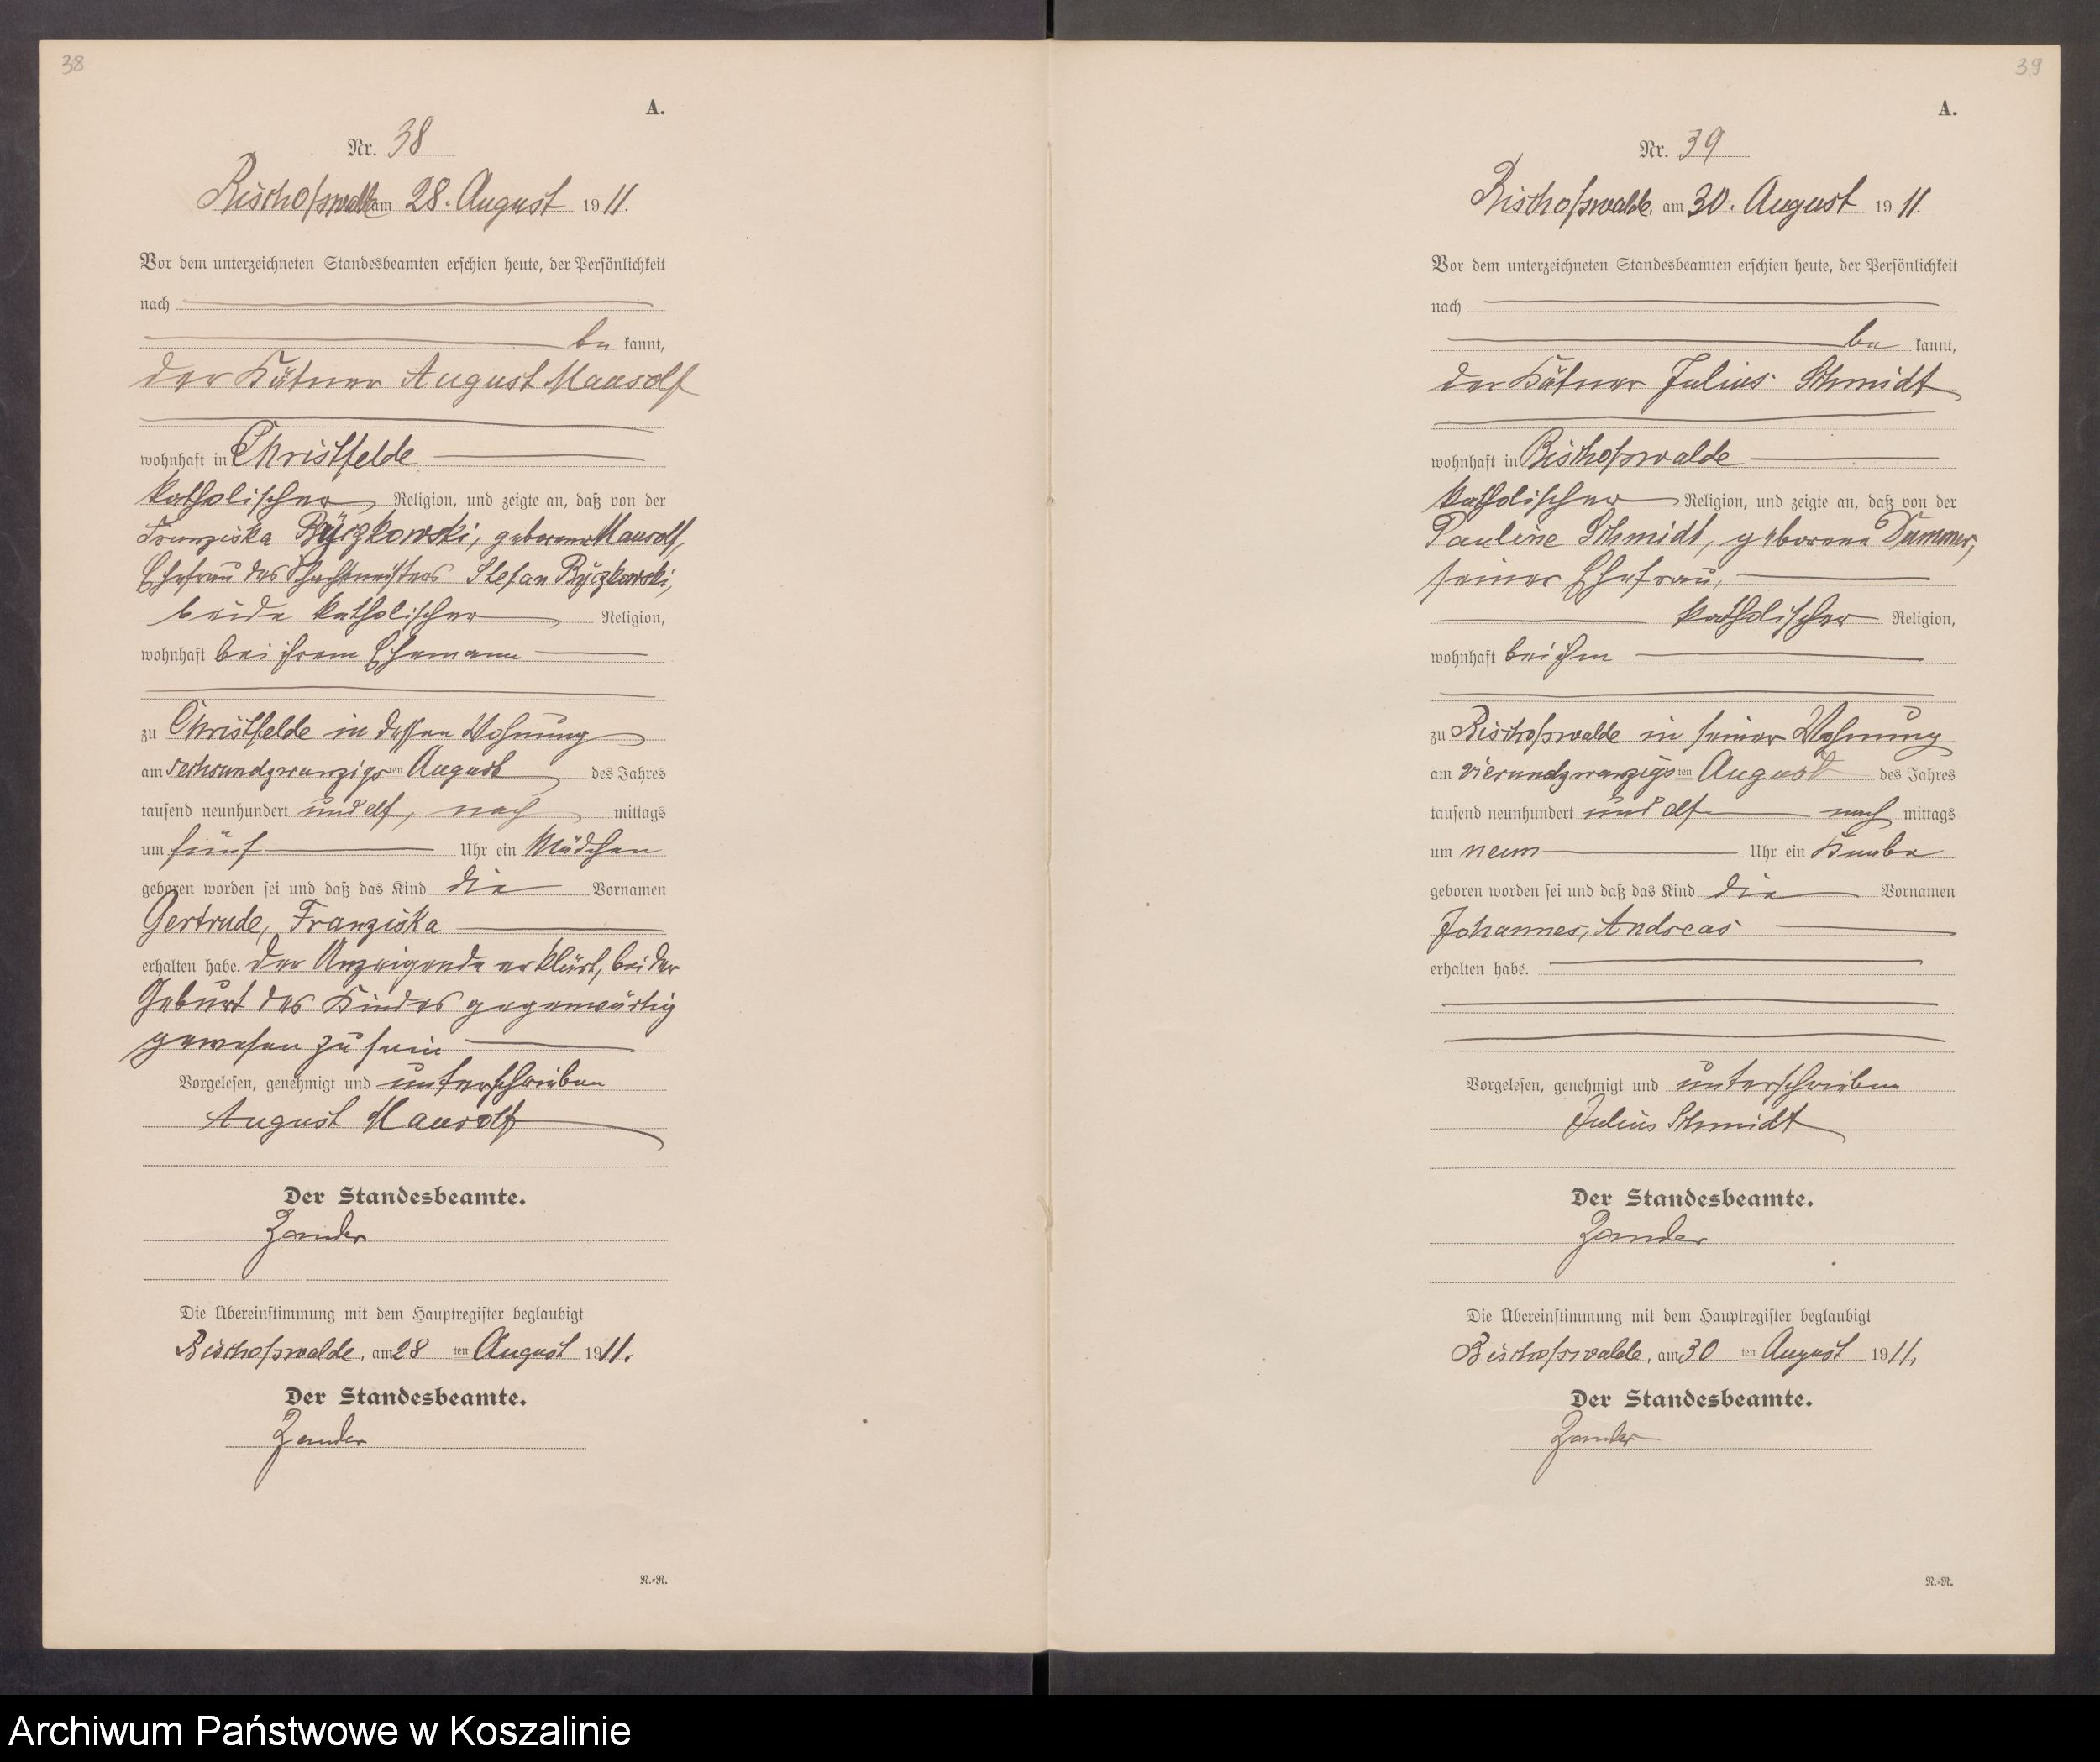 38
A.
Nr. 38
Bischofswalde am 28. August 1911.
Vor dem unterzeichneten Standesbeamten erschien heute, der Persönlichkeit
nach
be kannt,
der Kätner August Mausolf
wohnhaft in Christfelde
katholischer Religion, und zeigte an, daß von der
Franziska Ryczkowski, geborene Mausolf,
Ehefrau des Schachtmeisters Stefan Ryczkowski,
beide katholischer Religion,
wohnhaft bei ihrem Ehemann
zu Christfelde in dessen Wohnung
am sechsundzwanzigsten August des Jahres
tausend neunhundert und elf, nach mittags
um fünf Uhr ein Mädchen
geboren worden sei und daß das Kind die Vornamen
Gertrude, Franziska
erhalten habe. Der Anzeigende erklärt, bei der
Geburt des Kindes gegenwärtig
gewesen zu sein
Vorgelesen, genehmigt und unterschrieben
August Mausolf
Der Standesbeamte.
Zander
Die Übereinstimmung mit dem Hauptregister beglaubigt
Bischofswalde, am 28 ten August 1911.
Der Standesbeamte.
Zander
N.-N.
39
A.
Nr. 39
Bischofswalde, am 30. August 1911.
Vor dem unterzeichneten Standesbeamten erschien heute, der Persönlichkeit
nach
be kannt,
der Kätner Julius Schmidt
wohnhaft in Bischofswalde
katholischer Religion, und zeigte an, daß von der
Pauline Schmidt, geborene Dummer,
seiner Ehefrau,
katholischer Religion,
wohnhaft bei ihm
zu Bischofswalde in seiner Wohnung
am vierundzwanzigsten August des Jahres
tausend neunhundert und elf nach mittags
um neun Uhr ein Knabe
geboren worden sei und daß das Kind die Vornamen
Johannes, Andreas
erhalten habe.
Vorgelesen, genehmigt und unterschrieben
Julius Schmidt
Der Standesbeamte.
Zander
Die Übereinstimmung mit dem Hauptregister beglaubigt
Bischofswalde, am 30 ten August 1911.
Der Standesbeamte.
Zander
N.-N.
Archiwum Państwowe w Koszalinie